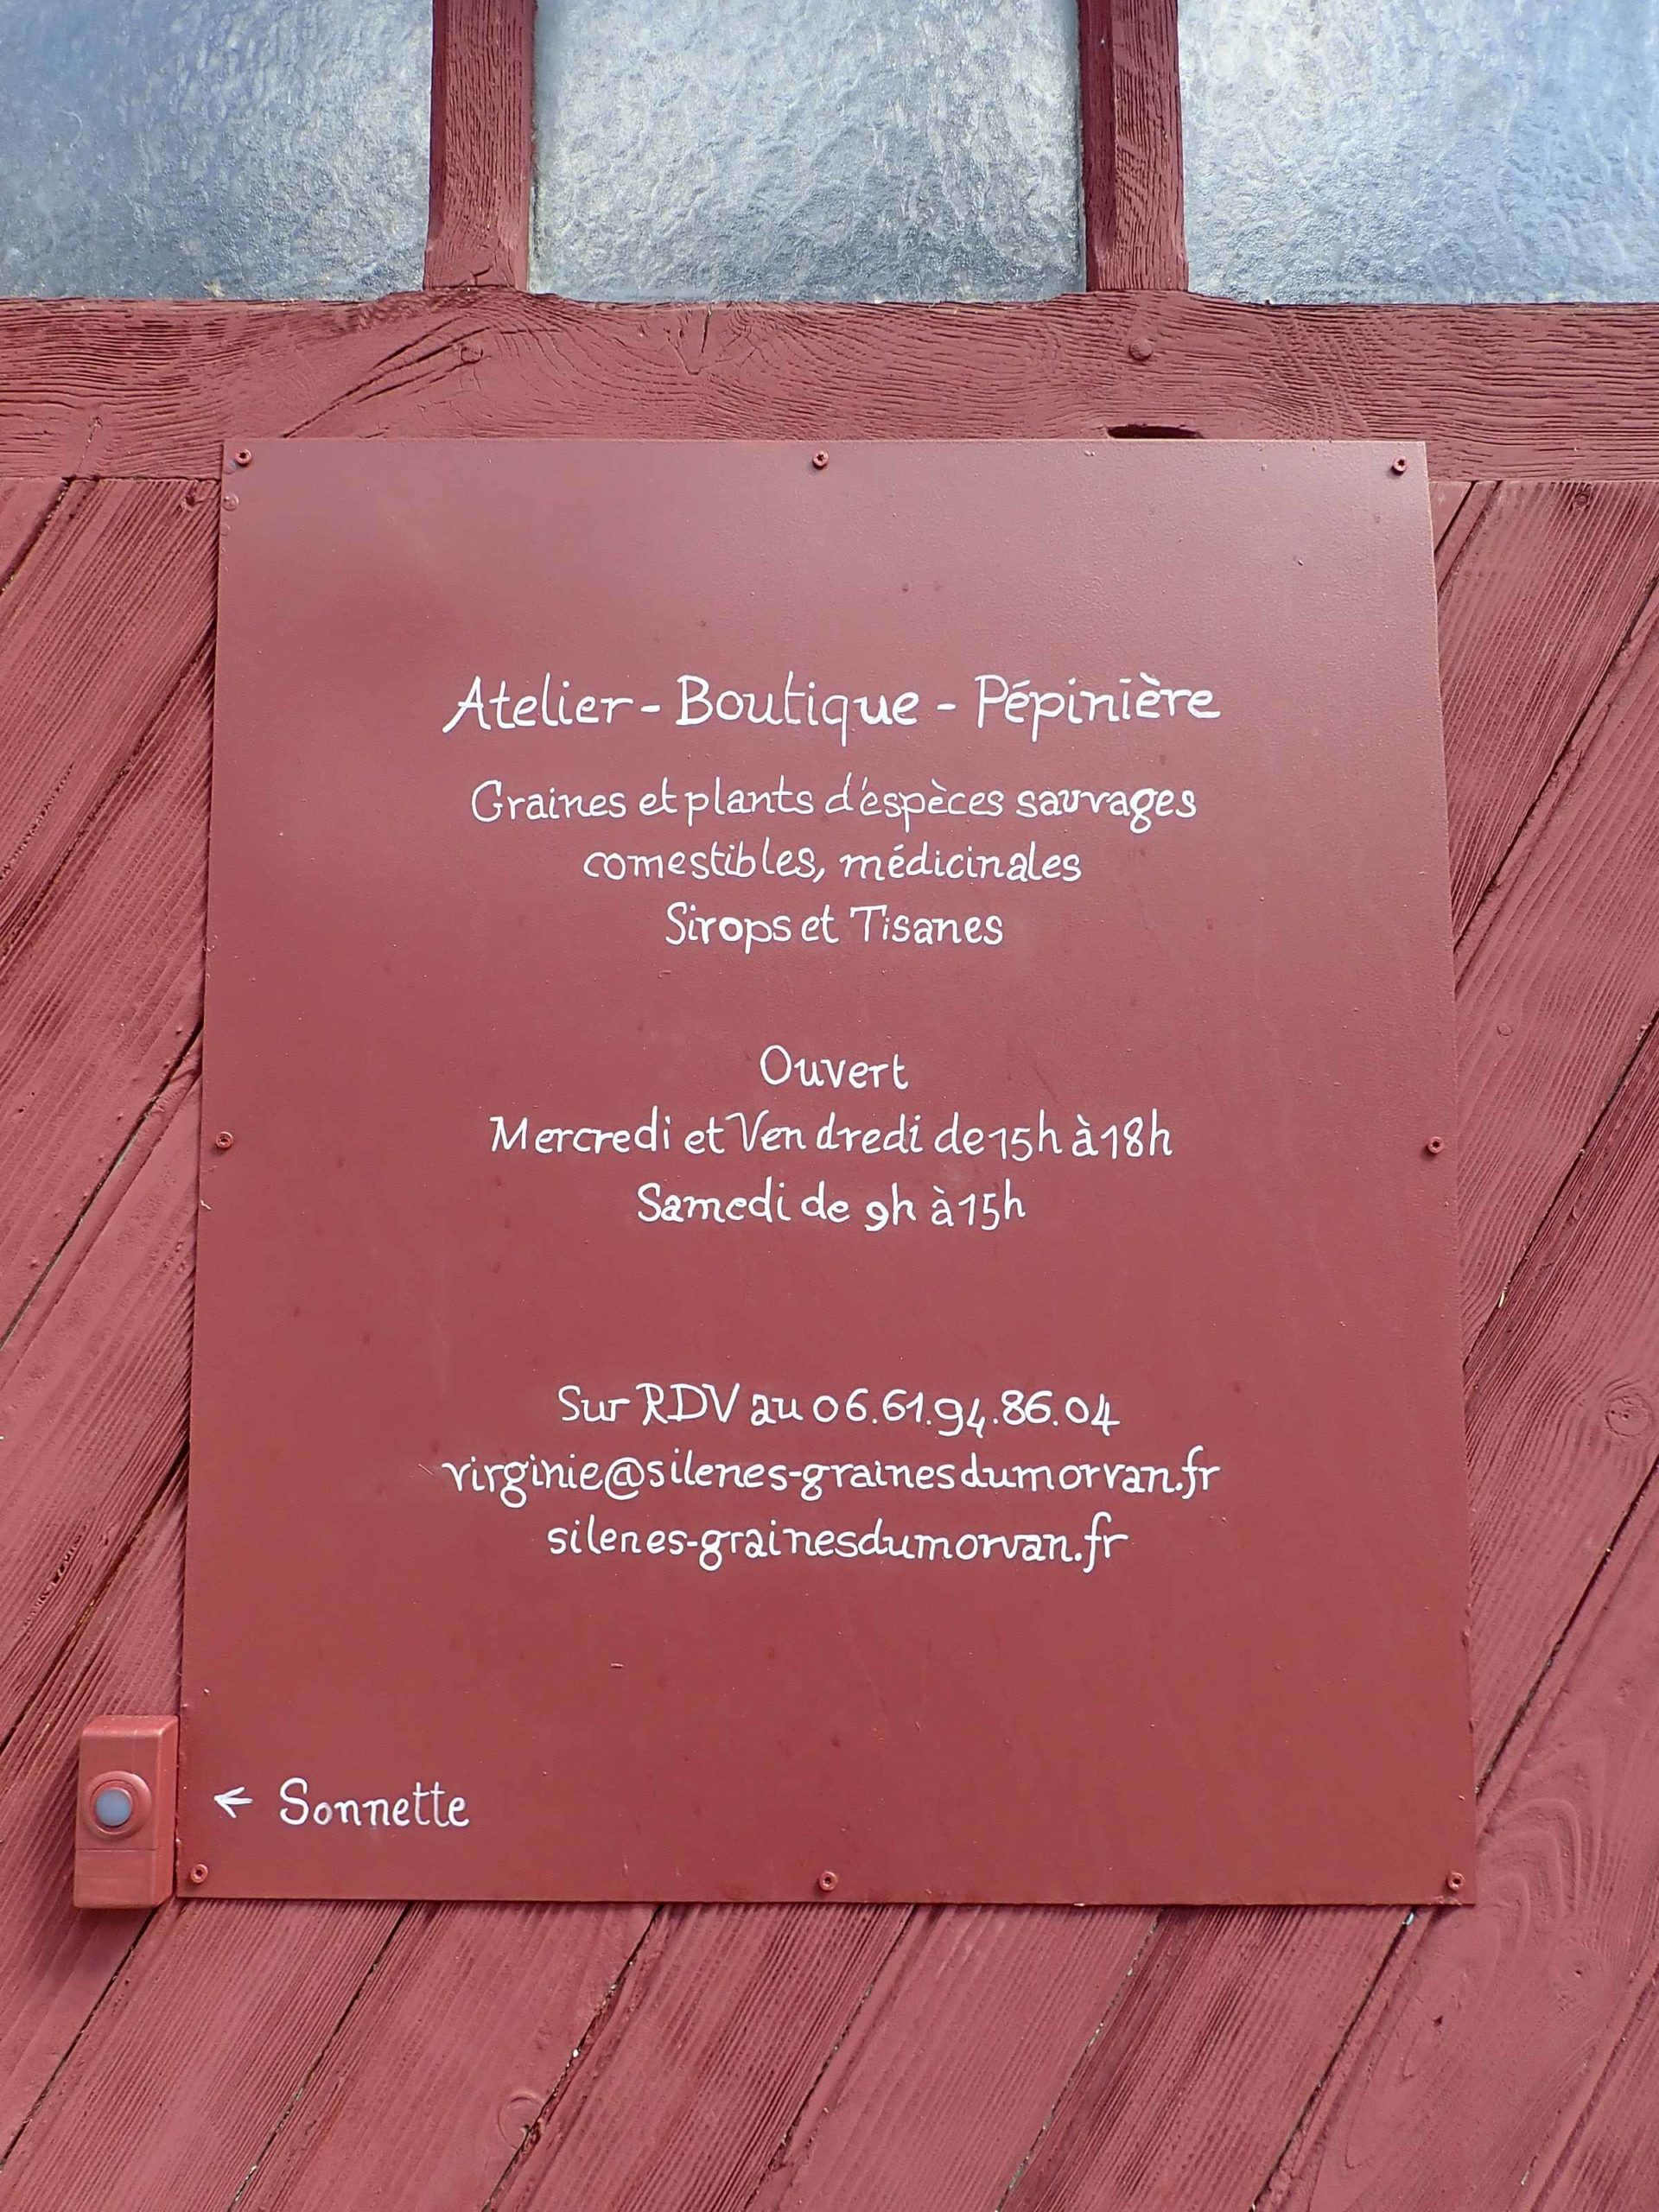 Atelier - Boutique - Pépinière
Graines et plants d'espèces sauvages
comestibles, médicinales
Sirops et Tisanes
Ouvert
Mercredi et Vendredi de 15h à 18h
Samedi de 9h à 15h
Sur RDV au 06.61.94.86.04
virginie@silenes-grainesdumorvan.fr
silenes-grainesdumorvan.fr
← Sonnette